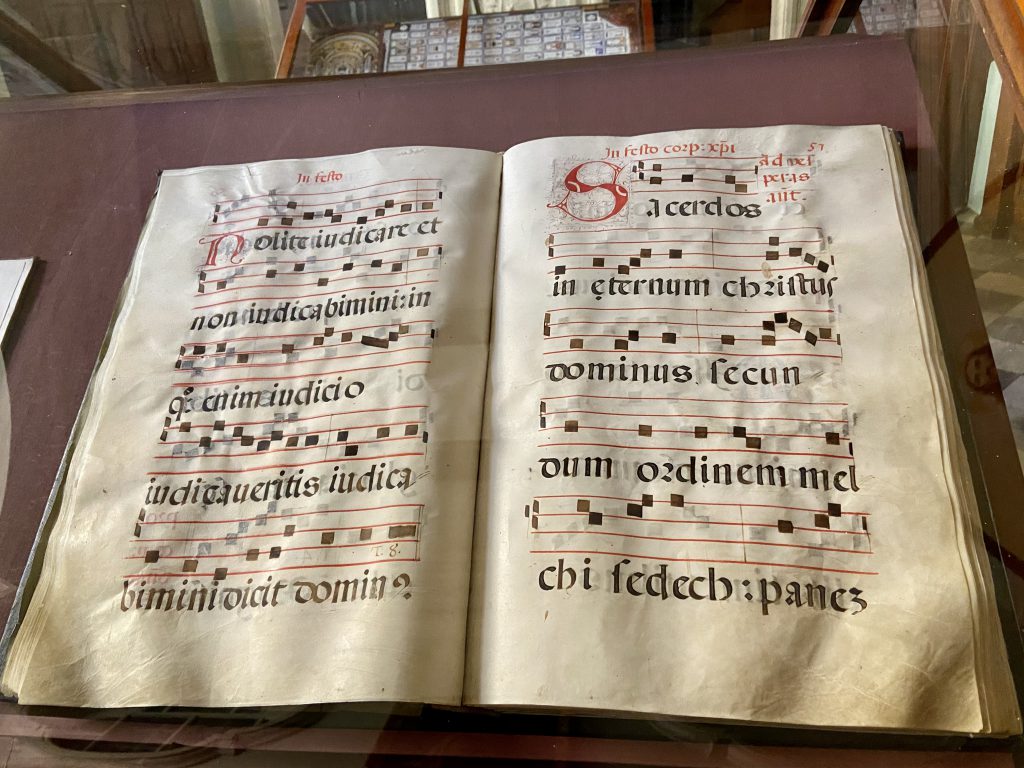 In festo
Nolite iudicare et
non iudicabimini: in
quo enim iudicio
iudicaveritis iudica
bimini dicit domin9
T. 8.
In festo corp: xpi
57
ad ves
peras
ant.
Sacerdos
in ęternum christus
dominus secun
dum ordinem mel
chi sedech: panez